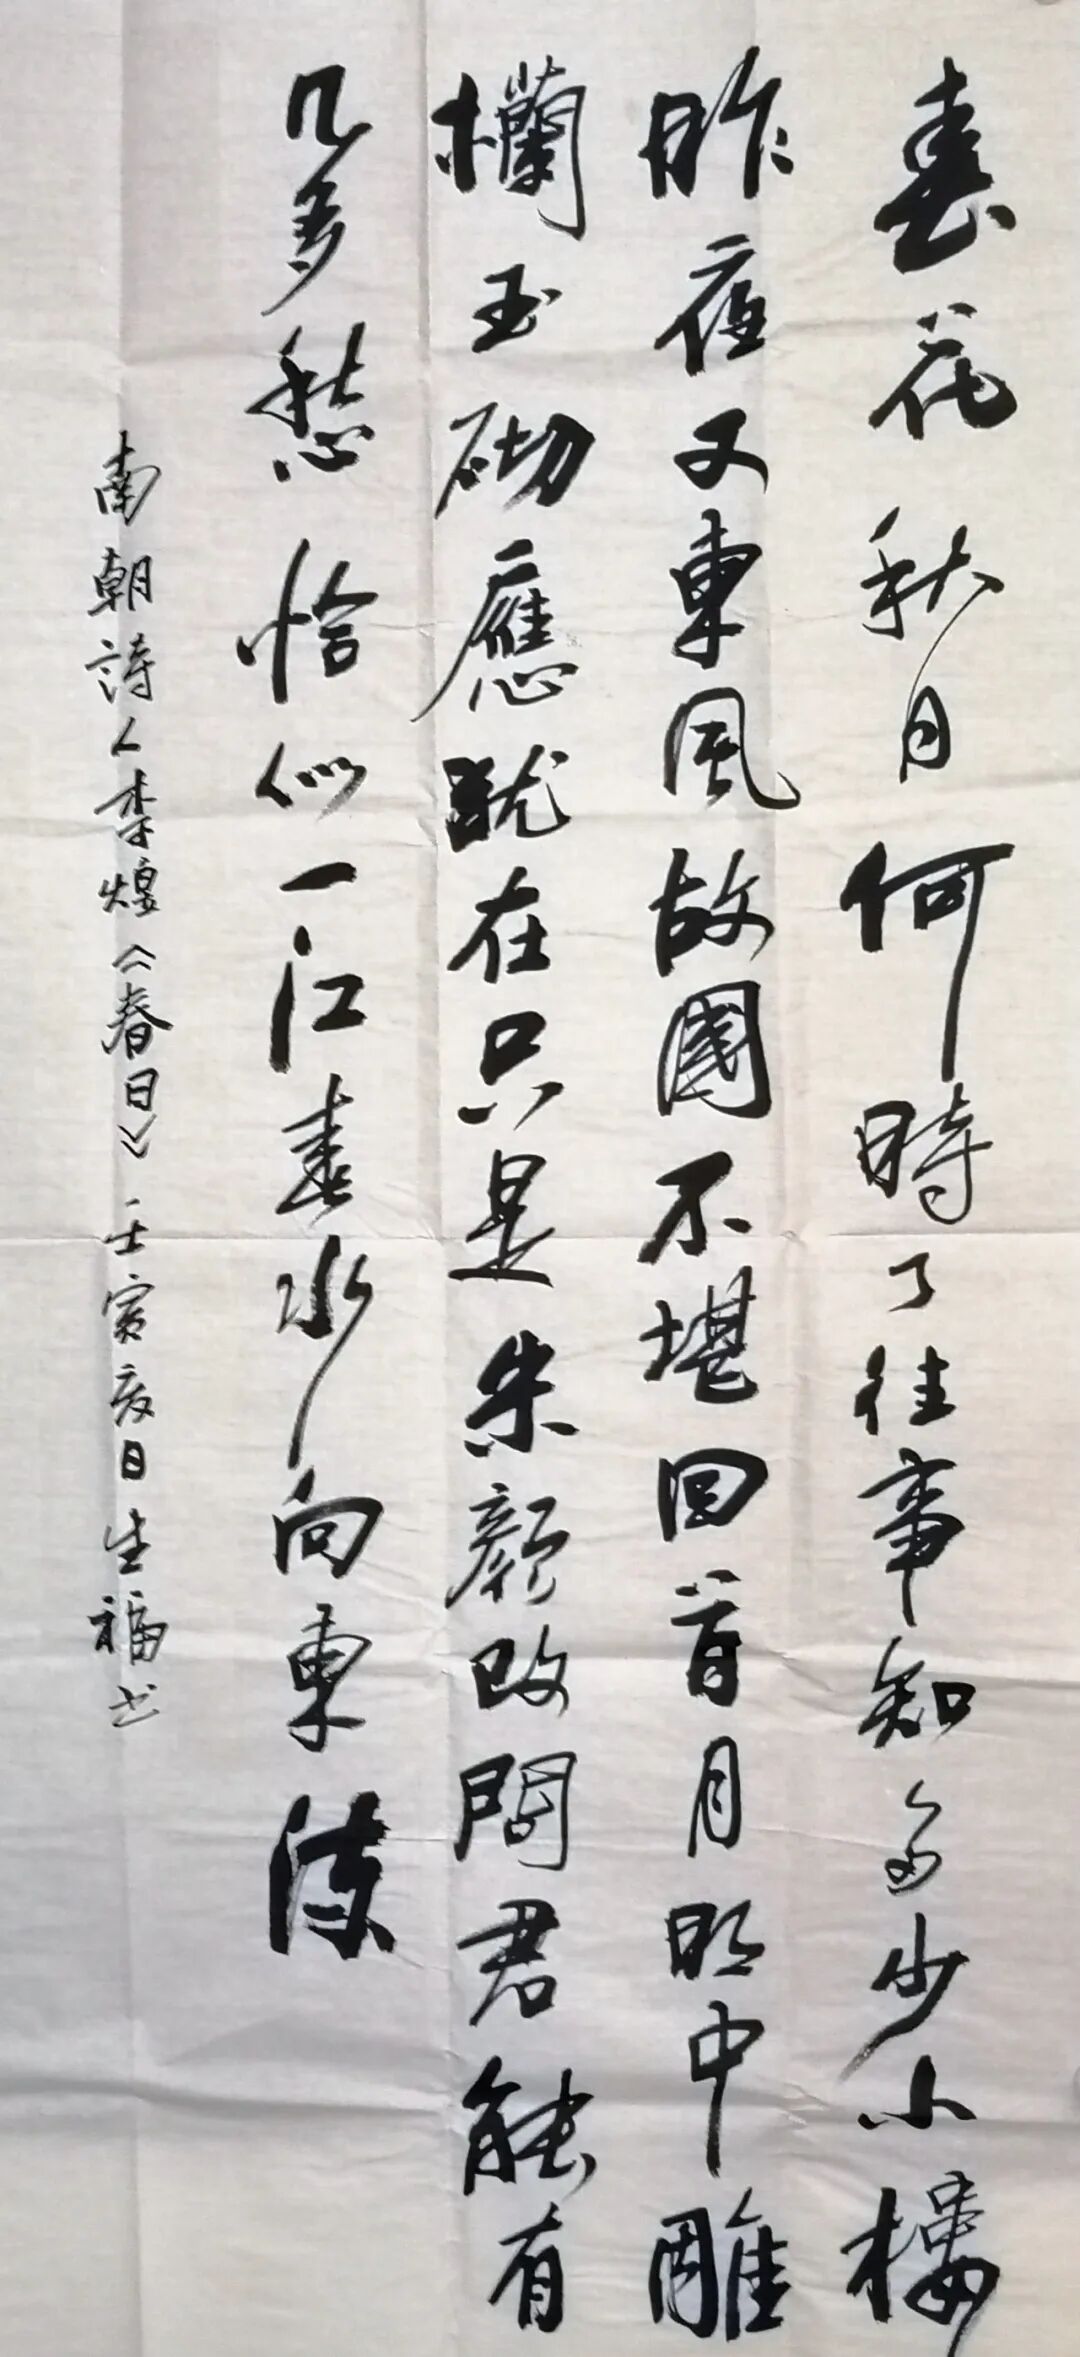 春花秋月何時了往事知多少小樓
昨夜又東風故國不堪回首月明中雕
欄玉砌應猶在只是朱顔改問君能有
几多愁恰似一江春水向東流
南朝詩人李煌《春日》壬寅亥日生福书